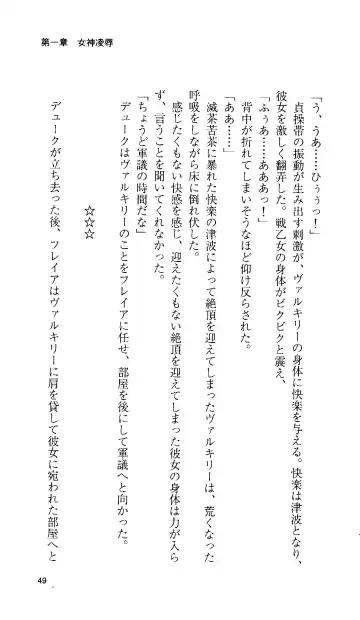 第一章　女神凌辱
「う、うあ……ひぅぅっ！」
貞操帯の振動が生み出す刺激が、ヴァルキリーの身体に快楽を与える。快楽は津波となり、
彼女を激しく翻弄した。戦乙女の身体がビクビクと震え、
「ふぅあ……あああっ！」
背中が折れてしまいそうなほど仰け反らされた。
「ああ……」
滅茶苦茶に暴れた快楽の津波によって絶頂を迎えてしまったヴァルキリーは、荒くなった
呼吸をしながら床に倒れ伏した。
感じたくもない快感を感じ、迎えたくもない絶頂を迎えてしまった彼女の身体は力が入ら
ず、言うことを聞いてくれなかった。
「ちょうど軍議の時間だな」
デュークはヴァルキリーのことをフレイアに任せ、部屋を後にして軍議へと向かった。
☆☆☆
デュークが立ち去った後、フレイアはヴァルキリーに肩を貸して彼女に宛われた部屋へと
49